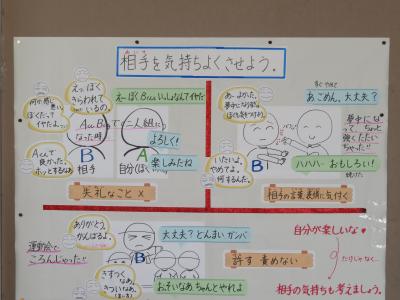 相手を気持ちよくさせよう。
えっ、ぼく
きらわれて
いるの。
何か感じ
悪い。
ぼくだって
イヤだよ…。
えー ぼくBくんといっしょなんてイヤだ
AとBとで二人組に
なった時
よろしく！
楽しみだね
Aくんで
良かった。
ホッとするなぁ
B
相手
A
自分(ぼく)
失礼なこと ×
あ ごめん。大丈夫？
あーよかった。
いたいよ。
やめてよ。
何するんだ。
B
ハハハ おもしろい！
相手の言葉、表情に気付く
ありがとう。
がんばるよ。
大丈夫？ とんまい ガンバ
運動会で
ころんじゃった!!
B
許す 責めない
きずつく
なあ。
おそいなあ ちゃんとやれよ
自分が楽しいな
たりじゃなく…
相手の気持ちも考えましょう。